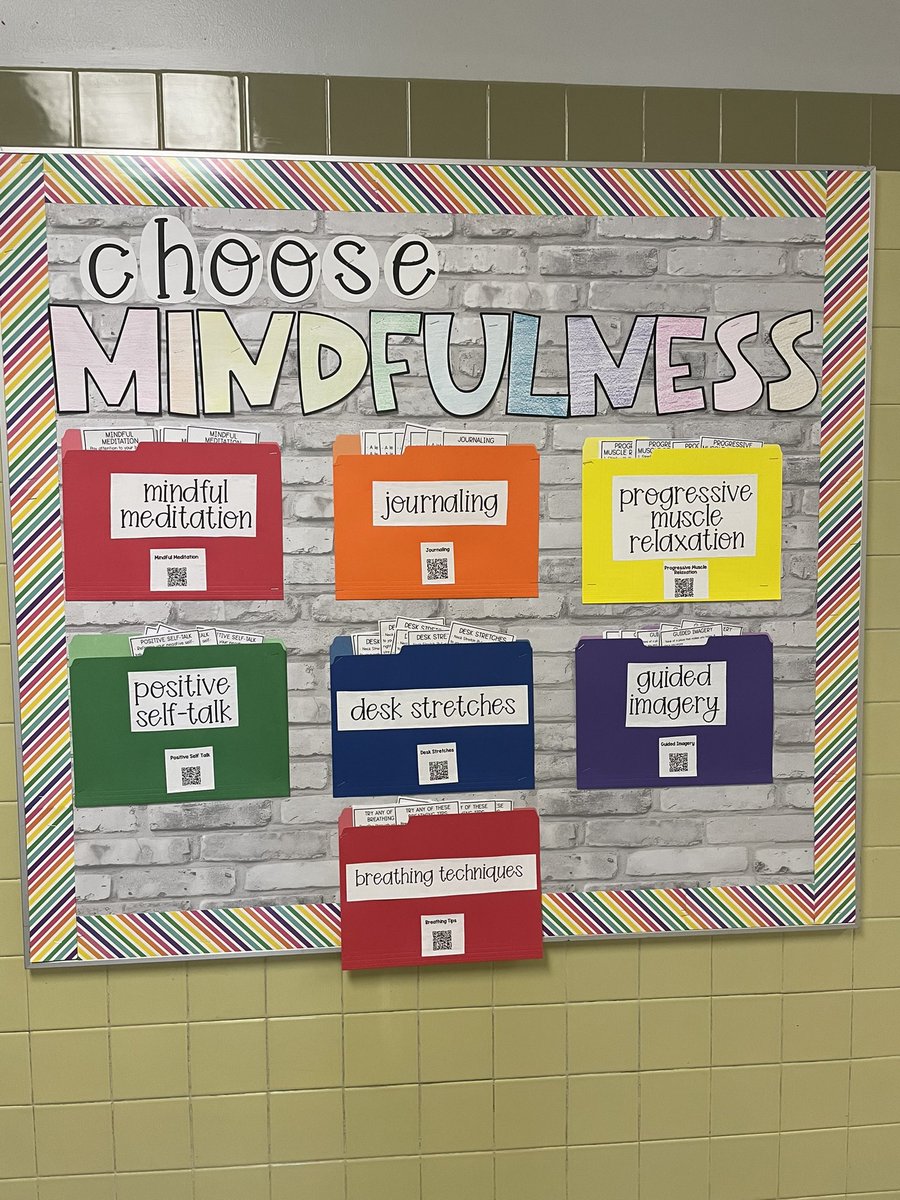 choose
MINDFULNESS
MINDFUL
MEDITATION
MINDFUL
MEDITATION
Pay attention to your
mindful
meditation
Mindful Meditation
JOURNALING
journaling
Journaling
PROGRESSIVE
progressive
muscle
relaxation
Progressive Muscle
Relaxation
POSITIVE SELF-TALK
POSITIVE SELF-TALK
positive
self-talk
Positive Self Talk
DESK STRETCHES
DESK STRETCHES
desk stretches
Desk Stretches
GUIDED IMAGERY
guided
imagery
Guided Imagery
TRY ANY OF
BREATHING
TRY ANY OF THESE
breathing techniques
Breathing Tips